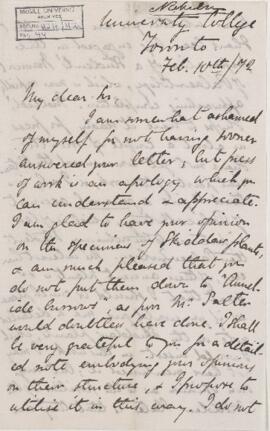 McGILL UNIVERSITY
ARCHIVES
University College
Toronto
Feb. 10th/72
My dear Sir
I am somewhat ashamed
of myself for not having sooner
answered your letter; but press
of work is an apology which you
can understand & appreciate.
I am glad to have your opinion
on the specimens of Skiddaw plants,
& am much pleased that you
do not put them down to "Annel-
ide burrows" as poor Mr. Salter
would doubtless have done. I shall
be very grateful to you for a detail-
ed note embodying your opinions
on their structure, & I propose to
utilise it in this way. I do not